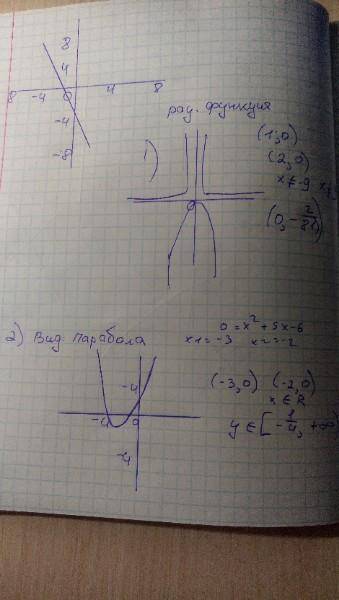 8
4
8 -4 0 4 8
-4
-8
рац. функция
1)
(1;0)
(2,0)
x ≠ -9
0
(0,-
2) Вид: парабола
0 = x² + 5x - 6
x1 = -3 x2 = -2
(-3,0) (-2,0)
x ∈ R
y ∈ [-1/4, +∞)
-4
-4 0
-4